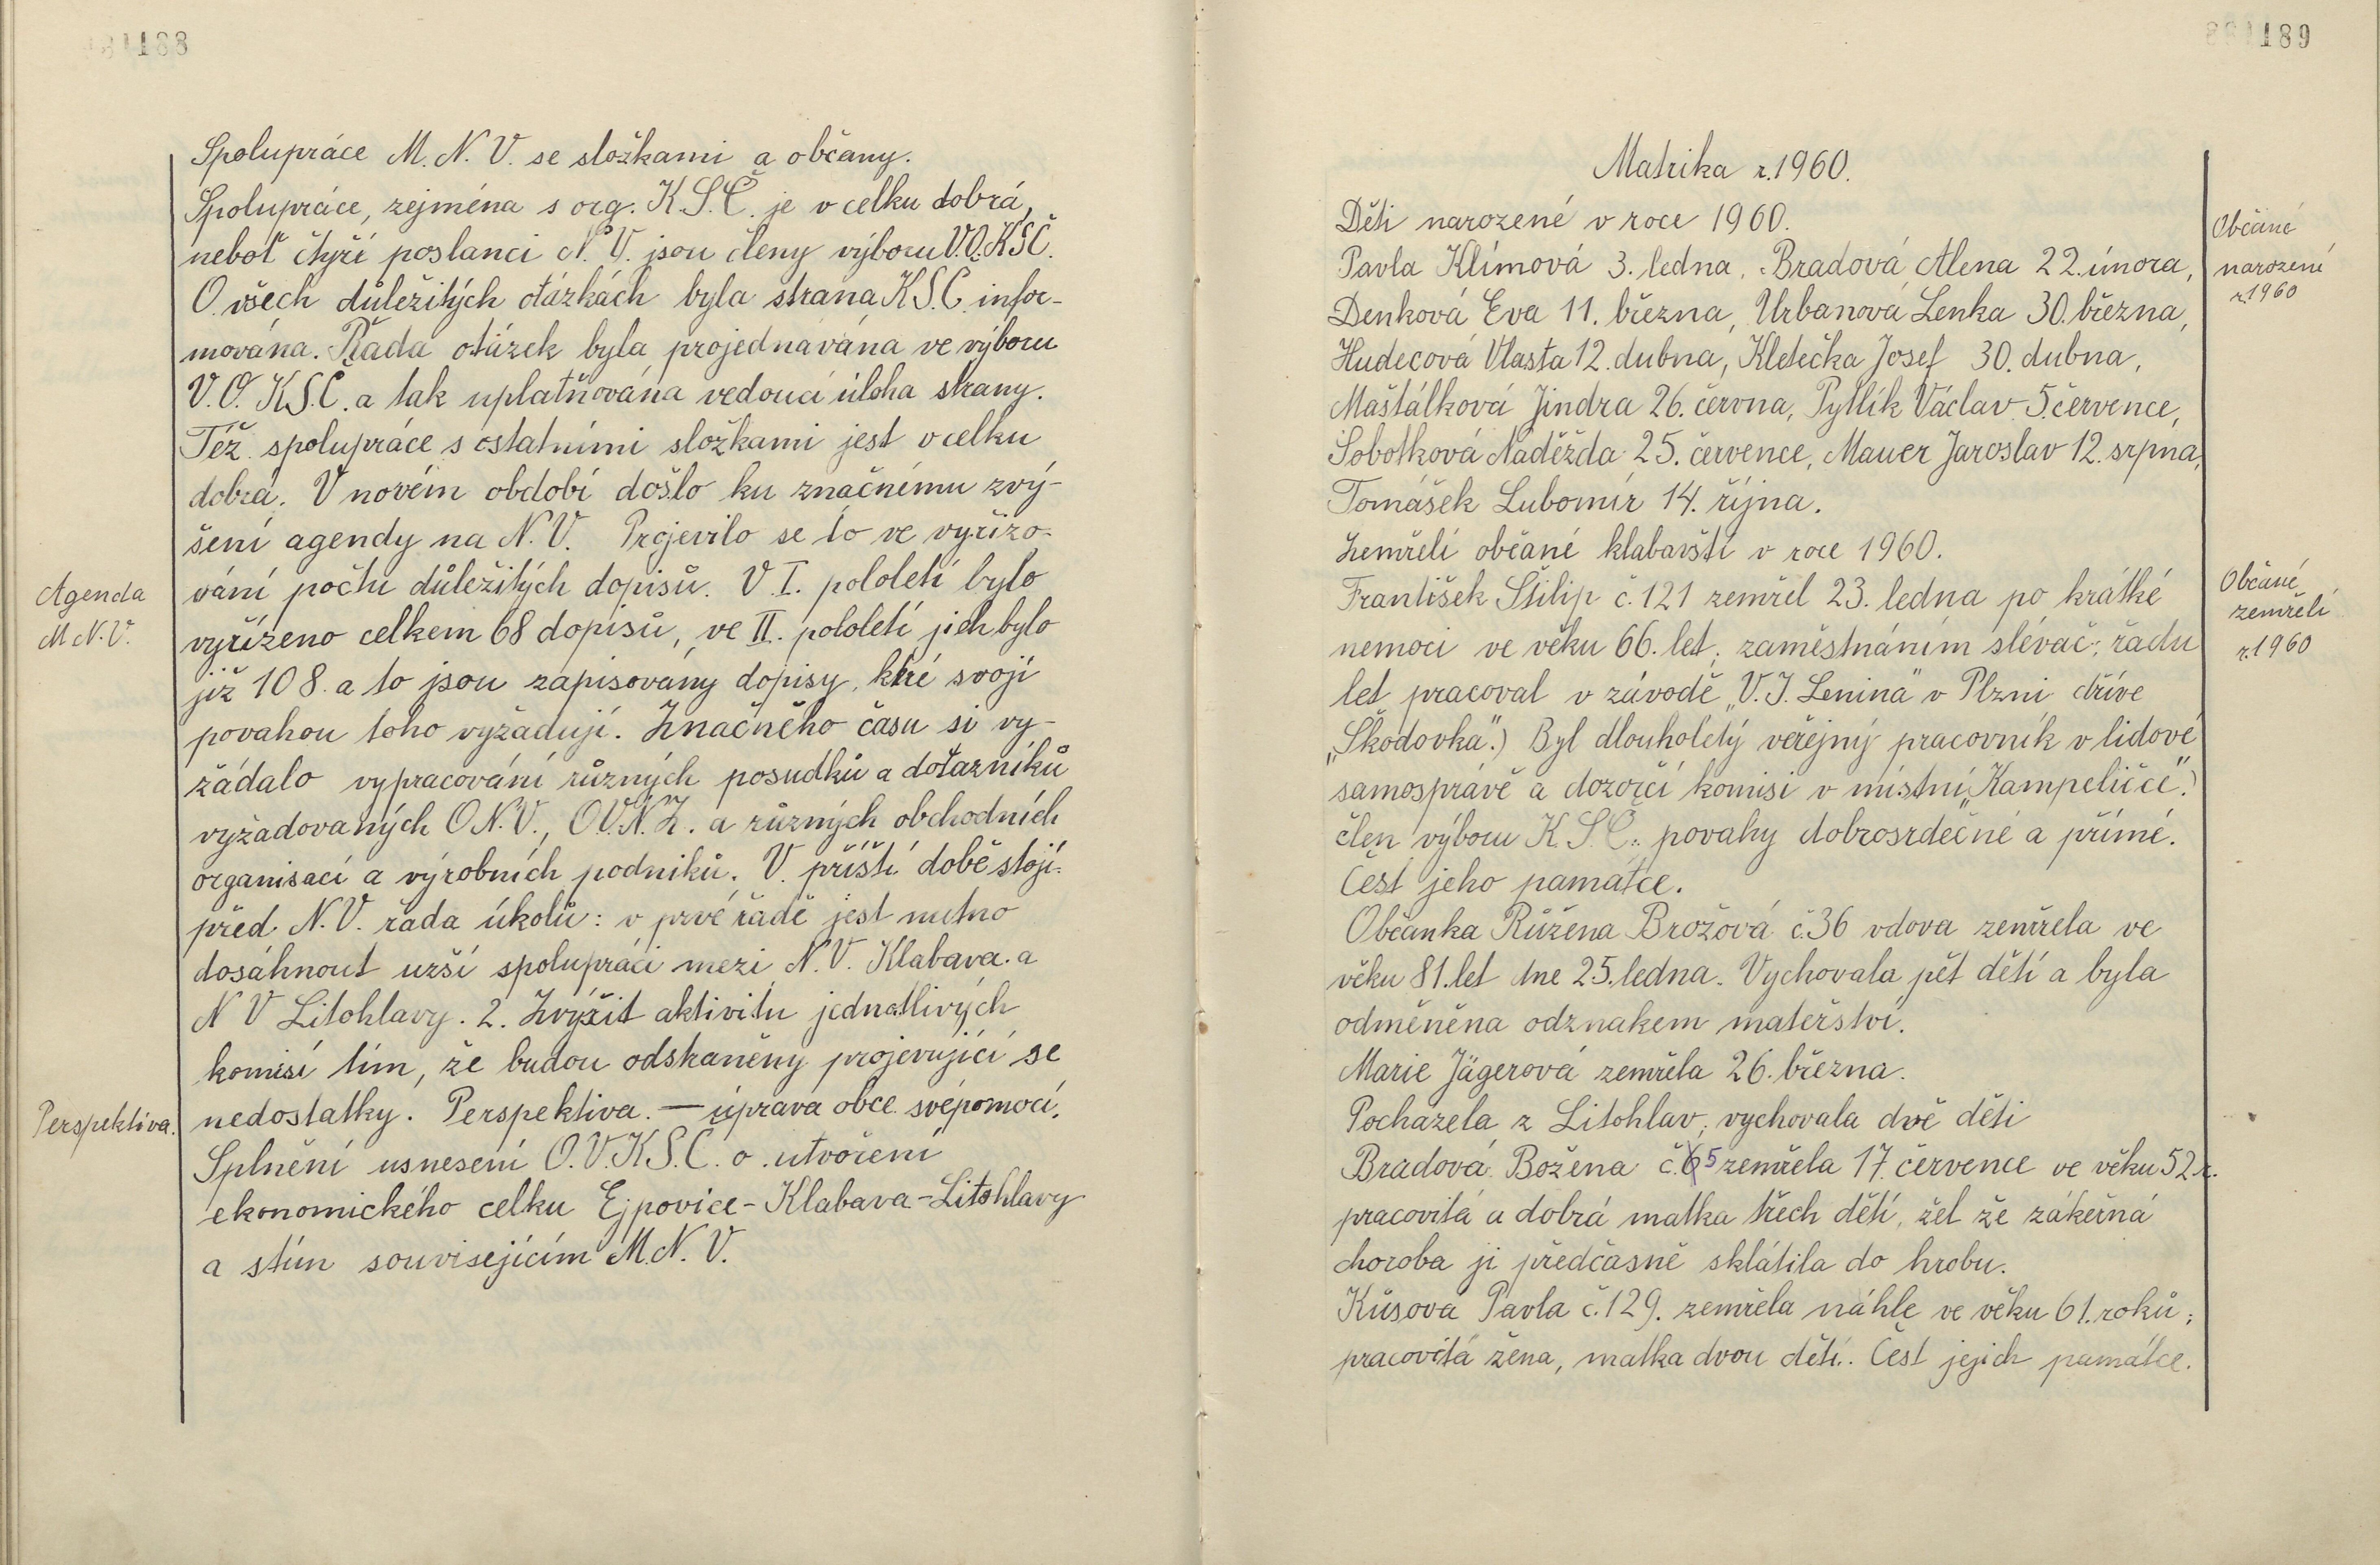 188
Spolupráce M. N. V. se složkami a občany.
Spolupráce, zejména s org. K.S.Č. je v celku dobrá,
neboť čtyři poslanci N. V. jsou členy výboru V.O.KSČ.
O všech důležitých otázkách byla strana K.S.Č. infor-
mována. Řada otázek byla projednávána ve výboru
V.O. KSČ. a tak uplatňována vedoucí úloha strany.
Též spolupráce s ostatními složkami jest v celku
dobrá. V novém období došlo ku značnému zvý-
šení agendy na N. V. Projevilo se to ve vyřizo-
Agenda
M N. V.
vání počtu důležitých dopisů. V I. pololetí bylo
vyřízeno celkem 68 dopisů, ve II. pololetí jich bylo
již 108. a to jsou zapisovány dopisy, kté svojí
povahou toho vyžadují. Značného času si vy-
žádalo vypracování různých posudků a dotazníků
vyžadovaných O.N.V., O.V.N.Z. a různých obchodních
organisací a výrobních podniků. V příští době stojí
před N.V. řada úkolů: v prvé řadě jest nutno
dosáhnout užší spolupráci mezi N.V. Klabava a
N V Litohlavy. 2. Zvýšit aktivitu jednotlivých
komisí tím, že budou odskaněny projevující se
Perspektiva.
nedostatky. Perspektiva. — úprava obce svépomocí.
Splnění usnesení O.V.KS.Č. o utvoření
ekonomického celku Ejpovice - Klabava - Litohlavy
a stím souvisejícím M.N. V.
189
Matrika r. 1960.
Děti narozené v roce 1960.
Občané
narozené
r. 1960
Pavla Klímová 3. ledna, Bradová Alena 22. února,
Denková Eva 11. března, Urbanová Lenka 30. března,
Hudecová Vlasta 12. dubna, Kletečka Josef 30. dubna,
Maštálková Jindra 26. června, Pytlík Václav 5. července,
Sobotková Naděžda 25. července, Mauer Jaroslav 12. srpna,
Tomášek Lubomír 14. října.
Zemřelí občané klabavští v roce 1960.
Občané
zemřelí
r. 1960
František Štilip č. 121 zemřel 23. ledna po krátké
nemoci ve věku 66. let, zaměstnáním slévač; řadu
let pracoval v závodě „V. I. Lenina" v Plzni dříve
„Škodovka".) Byl dlouholetý veřejný pracovník v lidové
samosprávě a dozorčí komisi v místní „Kampeličce".)
člen výboru K.S.Č.; povahy dobrosrdečné a přímé.
Čest jeho památce.
Občanka Růžena Brožová č. 36 vdova zemřela ve
věku 81. let dne 25. ledna. Vychovala pět dětí a byla
odměněna odznakem mateřství.
Marie Jägerová zemřela 26. března.
Pocházela z Litohlav, vychovala dvě děti
Bradová Božena č. 5 zemřela 17. července ve věku 52 r.
pracovitá a dobrá matka třech dětí, žel že zákeřná
choroba ji předčasně sklátila do hrobu.
Kůsova Pavla č. 129. zemřela náhle ve věku 61. roků;
pracovitá žena, matka dvou dětí. Čest jejich památce.